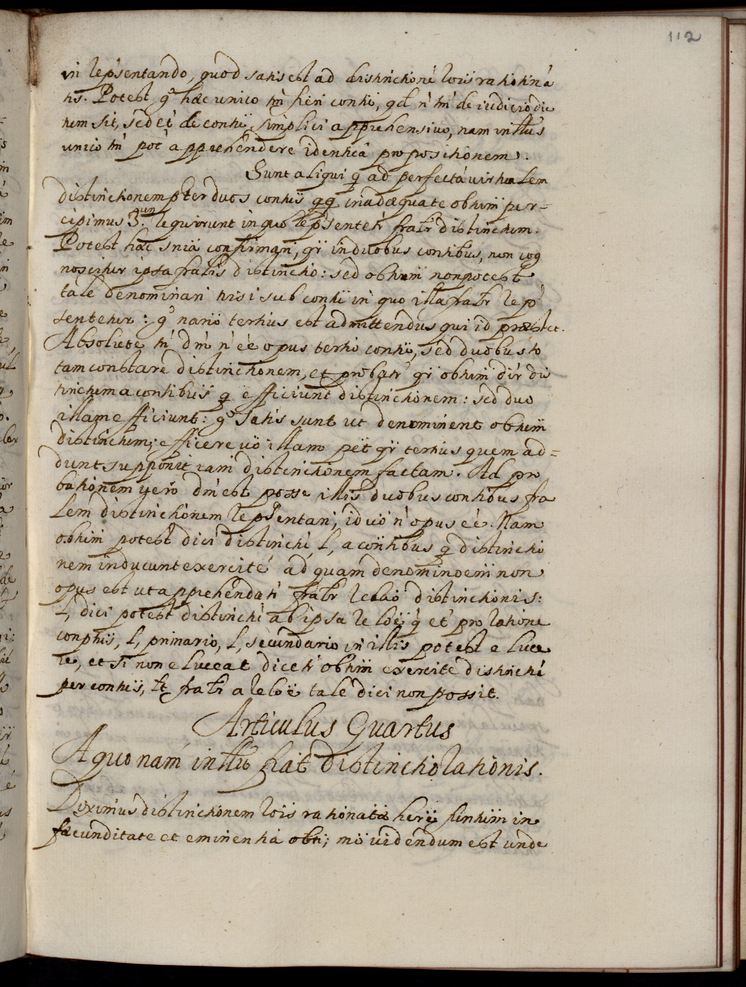 112
in rep'sentando, quod satis est ad distinctione rõis ratiotina
tis. Potest g° hæc unico tñ fieri conttu, qd n' tñ de iudicio dic
tum sit, sed et de conttu simplici apprehensivo, nam intttus
unico tñ pot apprehendere identica propositionem.
Sunt aliqui q ad perfecta virtualem
distinctionem pter duos conttus qq inadæquate obttum per=
cipimus 3.um requirunt in quo rep'sentetr fratr distinctum.
Potest hæc sn'ia confirmari, qr in duobus conttibus, non cog
noscitur ipsa fratis distinctio: sed obttum non potest
tale denominari nisi sub conttu in quo illa fratr rep'
sentetur: g° nario tertius est admittendus qui id præstet.
Absolute tñ dm n' ee opus tertio conttu, sed duobus to
tam constare distinctionem, et probatr qr obttum dir dis
tinctum a conttibus q efficiunt distinctionem: sed duo
illam efficiunt: g° satis sunt ut denominent obttum
distinctum; efficere vo illam pet qr tertius quem ad=
dunt supponit iam distinctionem factam. Ad pro
bationem vero dm est posse illis duobus conttibus fra
lem distinctionem rep'sentari, id vo n' opus ee. Nam
obttum potest dici distinctu l, a conttibus q distinctio
nem inducunt exercite ad quam denominoem non
opus est ut apprehendatr fratr relao distinctionis:
l, dici potest distinctu ab ipsa reloe q et pro ratione
conptus, l, primario, l, secundario in illis potest eluce
re, et si non eluceat dicetr obttum exercite distinctu
per conttus, lt fratr a reloe tale dici non possit.
Articulus Quartus
A quonam intttu fiat distinctio rationis.
Diximus distinctionem rõis ratiotinatæ fieri
fæcunditate et eminentia obtti; mo videndum est unde